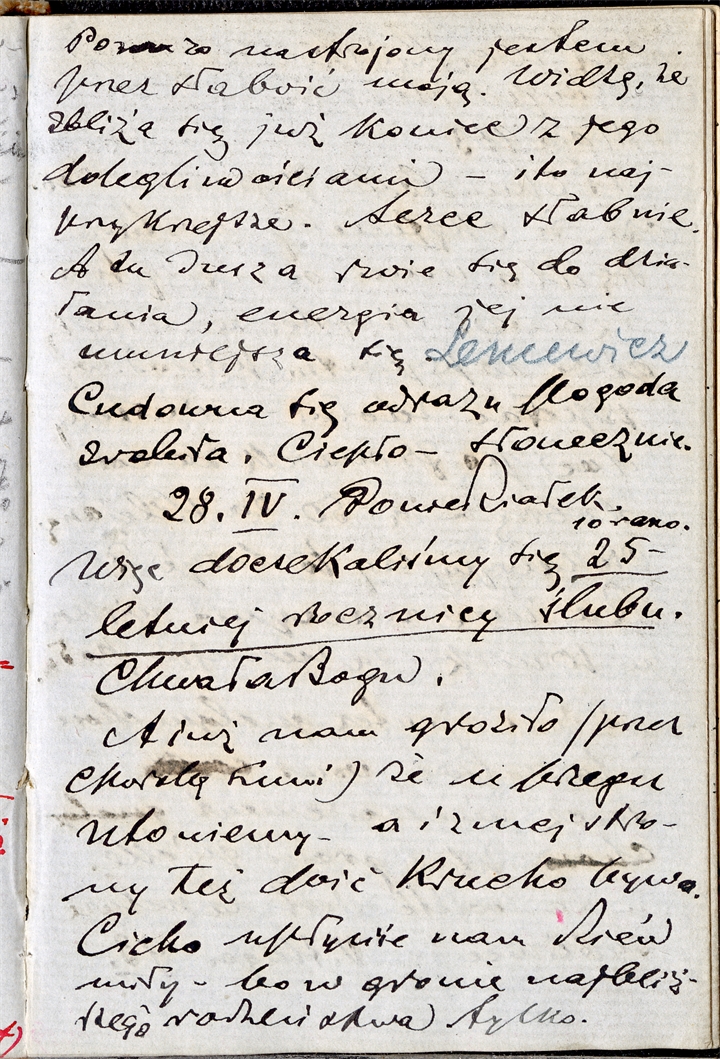 Ponuro nastrojony jestem
przez słabość moją. Widzę, że
zbliża się już koniec z jego
dolegliwościami – i to naj-
przykrzejsze. Serce słabnie.
A tu dusza rwie się do dzia-
łania, energia jej nie
umniejsza się. Leniewicz
Cudowna się odrazu pogoda
zrobiła. Ciepło – słonecznie.
28. IV. Poniedziałek.
10 rano.
Więc doczekaliśmy się 25-
letniej rocznicy ślubu.
Chwała Bogu.
A już nam groziło (przez
chorobę) że u brzegu
utoniemy – a i z mej stro-
ny też dość krucho bywa.
Cicho upłynie nam dzień
miły – bo w gronie najbliż-
szego rodzeństwa tylko.